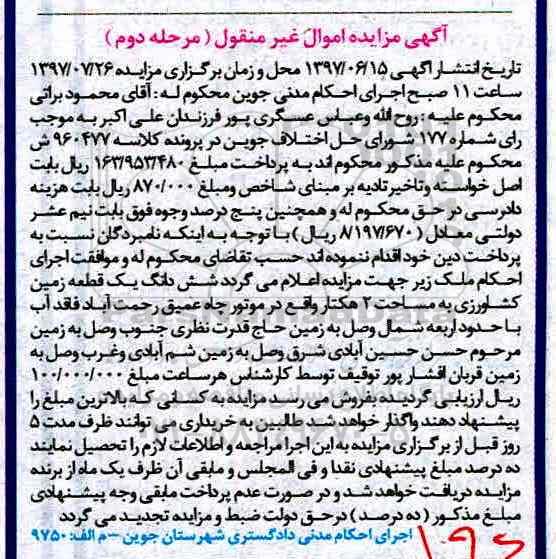 آگهی مزایده اموال غیر منقول ( مرحله دوم )
تاریخ انتشار آگهی ۱۳۹۷/۰۶/۱۵ محل و زمان برگزاری مزایده ۱۳۹۷/۰۷/۲۶
ساعت ۱۱ صبح اجرای احکام مدنی جوین محکوم له : آقای محمود براتی
محکوم علیه : روح الله وعباس عسگری پور فرزندان علی اکبر به موجب
رای شماره ۱۷۷ شورای حل اختلاف جوین در پرونده کلاسه ۹۶۰۴۷۷ ش
محکوم علیه مذکور محکوم اند به پرداخت مبلغ ۱۶۳/۹۵۳/۴۸۰ ریال بابت
اصل خواسته وتاخیر تادیه بر مبنای شاخص ومبلغ ۸۷۰/۰۰۰ ریال بابت هزینه
دادرسی در حق محکوم له و همچنین پنج درصد وجوه فوق بابت نیم عشر
دولتی معادل ( ۸/۱۹۷/۶۷۰ ریال ) با توجه به اینکه نامبردگان نسبت به
پرداخت دین خود اقدام ننموده اند حسب تقاضای محکوم له و موافقت اجرای
احکام ملک زیر جهت مزایده اعلام می گردد شش دانگ یک قطعه زمین
کشاورزی به مساحت ۲ هکتار واقع در موتور چاه عمیق رحمت آباد فاقد آب
با حدود اربعه شمال وصل به زمین حاج قدرت نظری جنوب وصل به زمین
مرحوم حسن حسین آبادی شرق وصل به زمین شم آبادی وغرب وصل به
زمین قربان افشار پور توقیف توسط کارشناس هرساعت مبلغ ۱۰۰/۰۰۰/۰۰۰
ریال ارزیابی گردیده بفروش می رسد مزایده به کسانی که بالاترین مبلغ را
پیشنهاد دهند واگذار خواهد شد طالبین به خریداری می توانند ظرف مدت ۵
روز قبل از برگزاری مزایده به این اجرا مراجعه و اطلاعات لازم را تحصیل نمایند
ده درصد مبلغ پیشنهادی نقدا و فی المجلس و مابقی آن ظرف یک ماه از برنده
مزایده دریافت خواهد شد و در صورت عدم پرداخت مابقی وجه پیشنهادی
مبلغ مذکور ( ده درصد ) در حق دولت ضبط و مزایده تجدید می گردد
اجرای احکام مدنی دادگستری شهرستان جوین – م الف: ۹۷۵۰